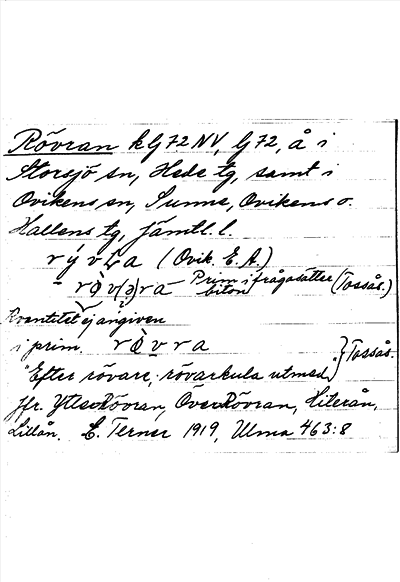 Rövran kG72NV, G72, å i
Storsjö sn, Hede tg, samt i
Ovikens sn, Sunne, Ovikens o.
Hallens tg, Jämtl. l.
r ý v L a (Ovik. E. A.)
r ò v(ə)r a Prim i frågasätter (Tossås.)
biton
Kvantitet ej angiven
i prim. r ò v r a } Tossås.
"Efter rövare; rövarkula utmed
Jfr. YtterRövran, ÖverRövran, Hiterån,
Lillån. E. Terner 1919, Ulma 463:8